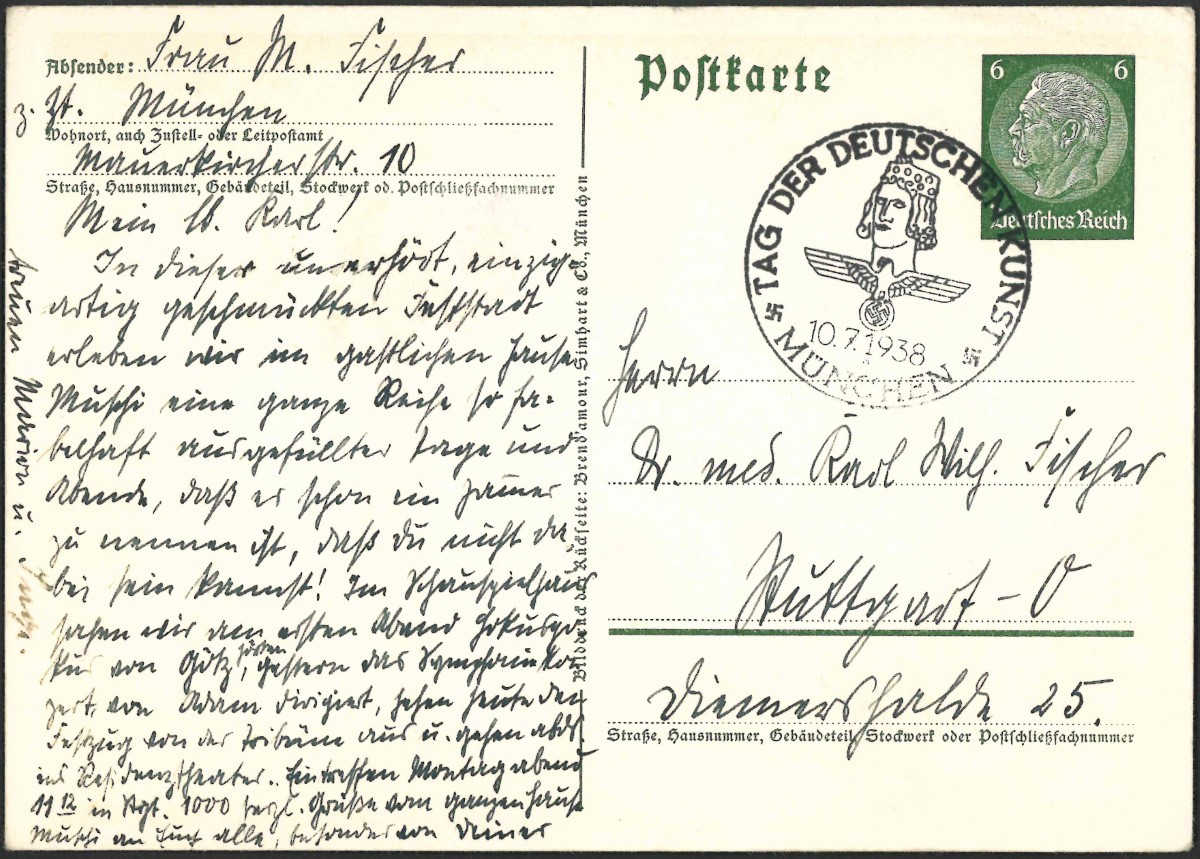 Absender: Frau M. Fischer
z. Zt. München
Wohnort, auch Zustell- oder Leitpostamt
Mauerkircherstr. 10
Straße, Hausnummer, Gebäudeteil, Stockwerk od. Postschließfachnummer
Mein lb. Karl!
In dieser unerhört, einzig-
artig geschmückten Feststadt
erleben wir im gastlichen Hause
Muschi eine ganze Reihe so fa-
belhaft ausgefüllter Tage und
Abende, daß es schon ein Jammer
zu nennen ist, daß Du nicht da-
bei sein kannst! Im Schauspielhaus
sahen wir am ersten Abend Hokuspo-
kus von Götz, hörten gestern das Symphoniekon-
zert, von Adam dirigiert, sehen heute den
Festzug von der Tribüne aus u. gehen abds.
ins Residenztheater. Eintreffen Montag abend
11 12 in Stgt. 1000 herzl. Grüße vom ganzen Hause
Muschi an Euch alle, besonders von Deiner
treuen Marion u.
Bilddruck der Rückseite: Brend'amour, Simhart & Co., München
Postkarte
6 6
Deutsches Reich
TAG DER DEUTSCHEN KUNST
10.7.1938
MÜNCHEN
Herrn
Dr. med. Karl Wilh. Fischer
Stuttgart-O
Diemershalde 25.
Straße, Hausnummer, Gebäudeteil, Stockwerk oder Postschließfachnummer